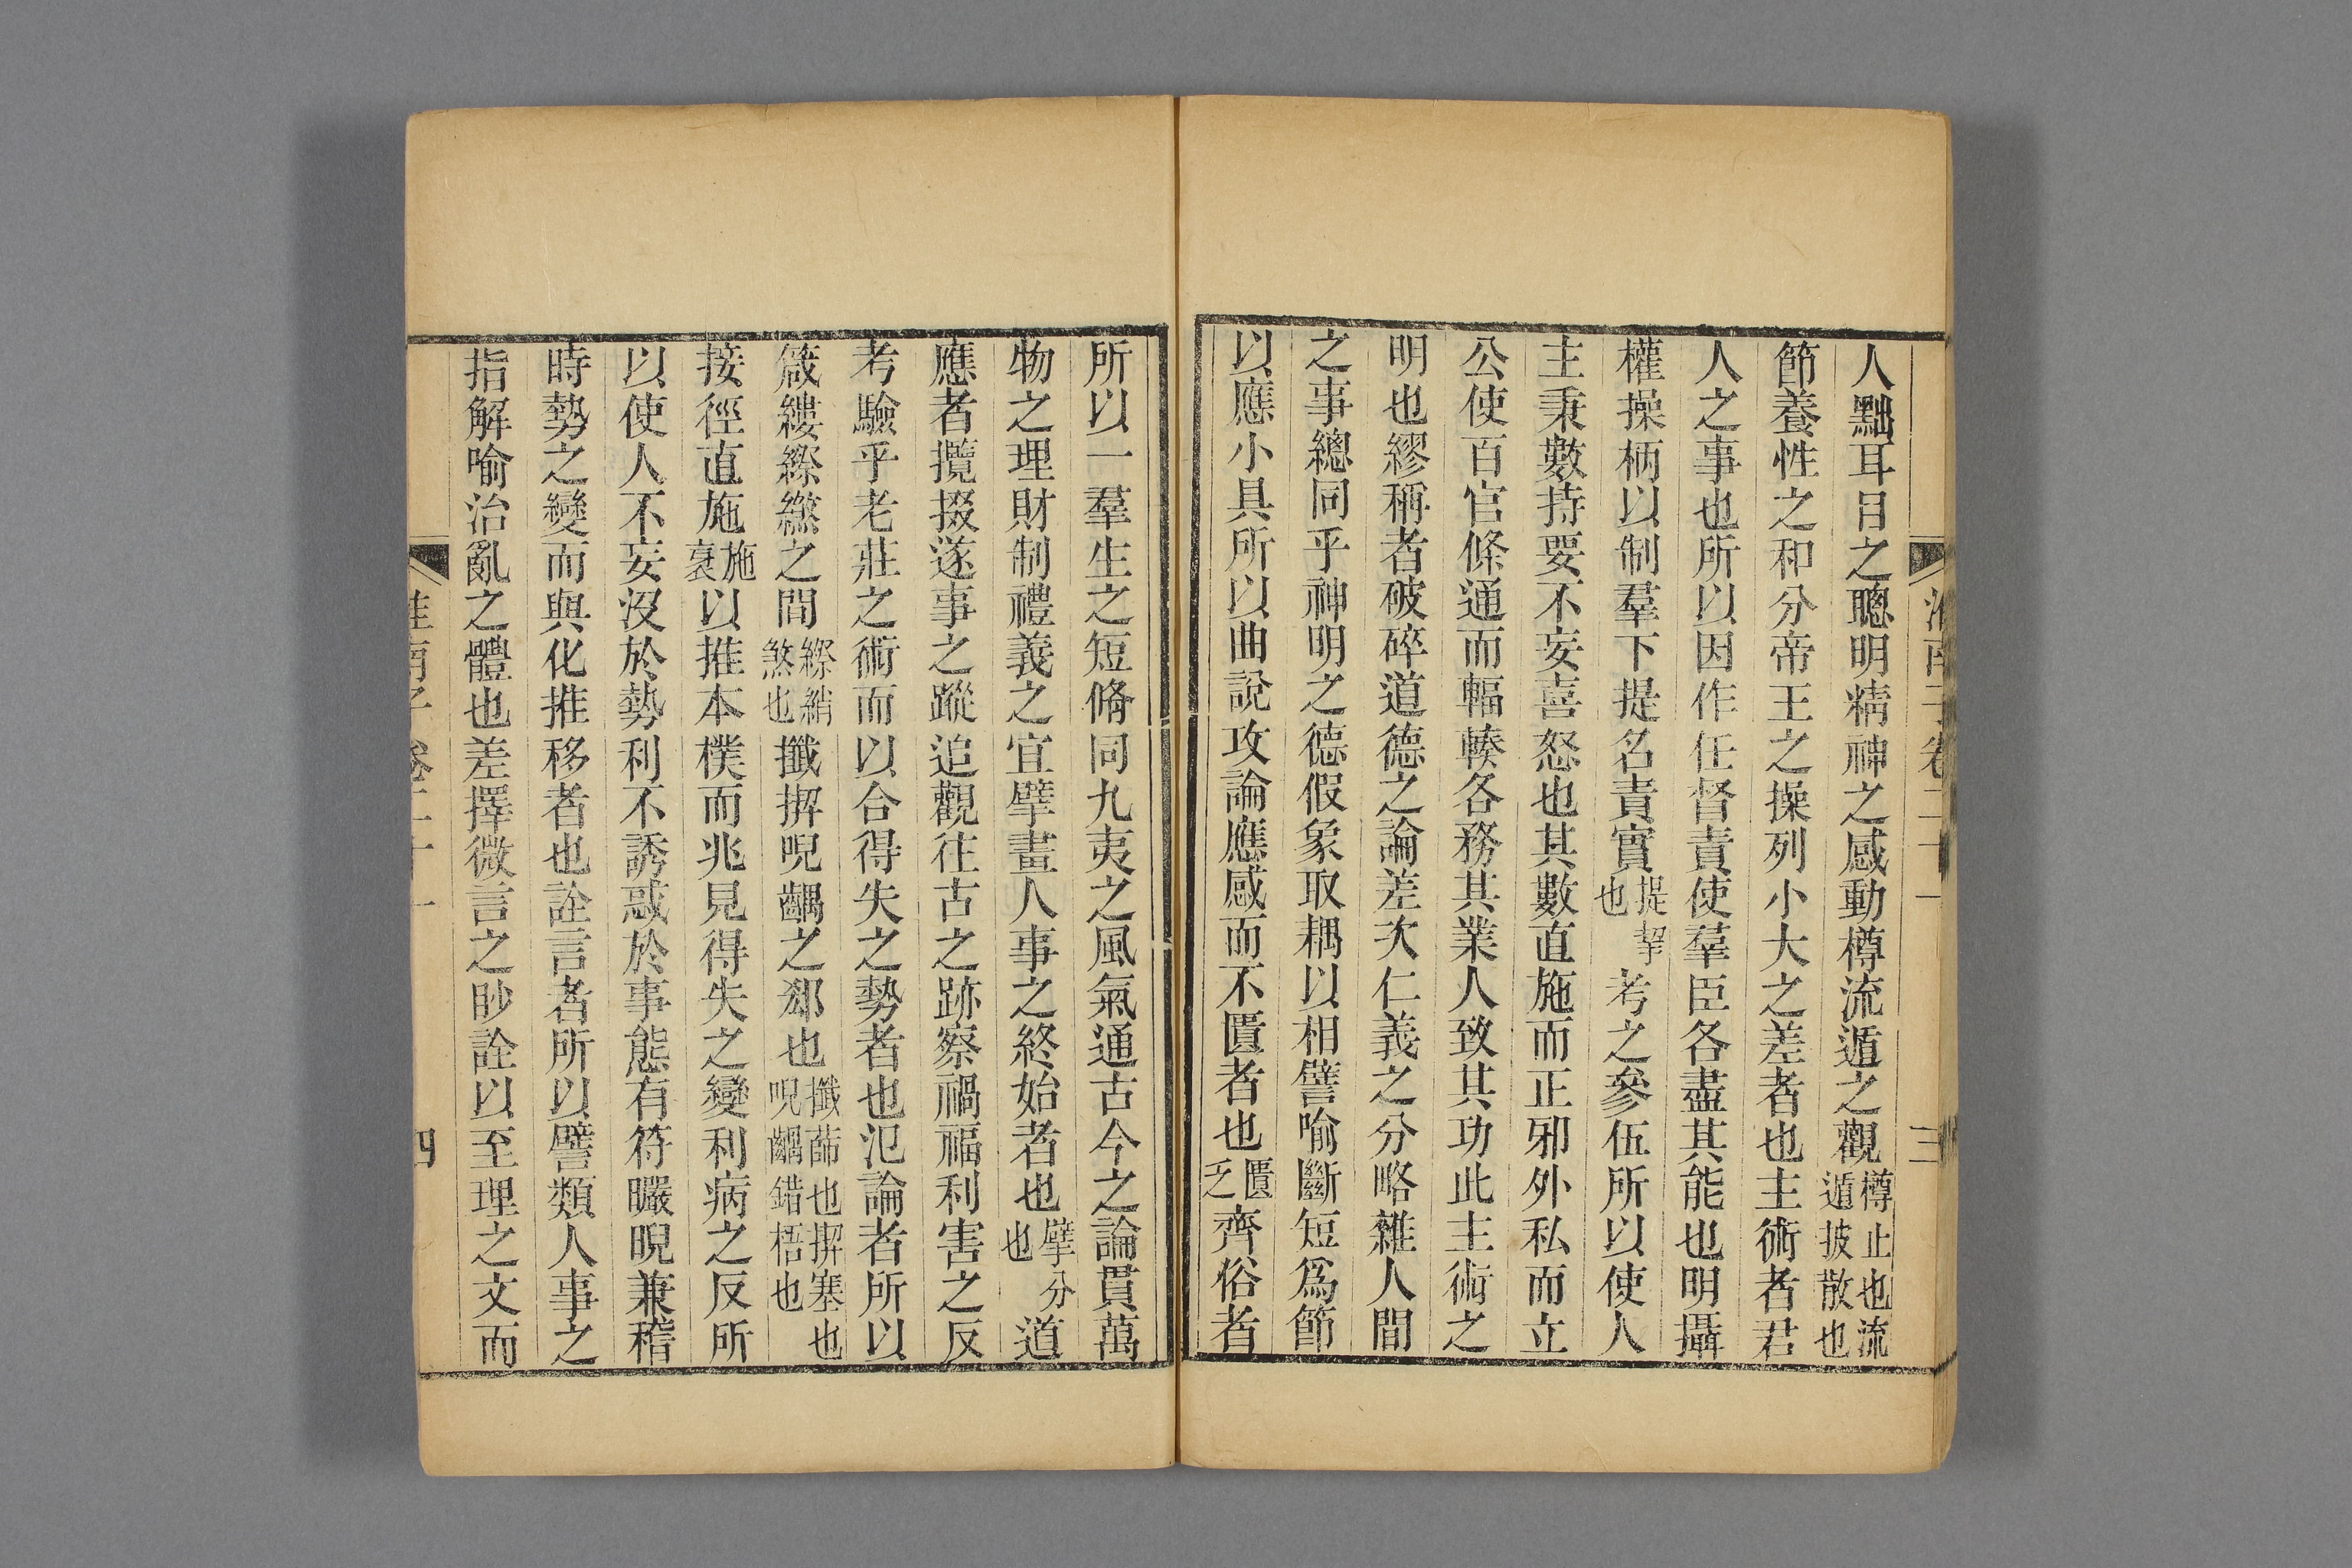 淮南子卷二十一
三
人黜耳目之聰明精神之感動樽流遁之觀樽止也流遁披散也
節養性之和分帝王之操列小大之差者也主術者君
人之事也所以因作任督責使羣臣各盡其能也明攝
權操柄以制羣下提名責實提挈也考之參伍所以使人
主秉數持要不妄喜怒也其數直施而正邪外私而立
公使百官條通而輻輳各務其業人致其功此主術之
明也繆稱者破碎道德之論差次仁義之分略雜人間
之事總同乎神明之德假象取耦以相譬喻斷短爲節
以應小具所以曲說攻論應感而不匱者也匱乏齊俗者
所以一羣生之短脩同九夷之風氣通古今之論貫萬
物之理財制禮義之宜擘畫人事之終始者也擘分也道
應者攬掇遂事之蹤追觀往古之跡察禍福利害之反
考驗乎老莊之術而以合得失之勢者也氾論者所以
箴縷縩繺之間縩綃煞也攕揳唲齵之郄也攕蒒也揳塞也唲齵錯梧也
接徑直施施衺以推本樸而兆見得失之變利病之反所
以使人不妄沒於勢利不誘惑於事態有符曮晲兼稽
時勢之變而與化推移者也詮言者所以譬類人事之
指解喻治亂之體也差擇微言之眇詮以至理之文而
淮南子卷二十一
四